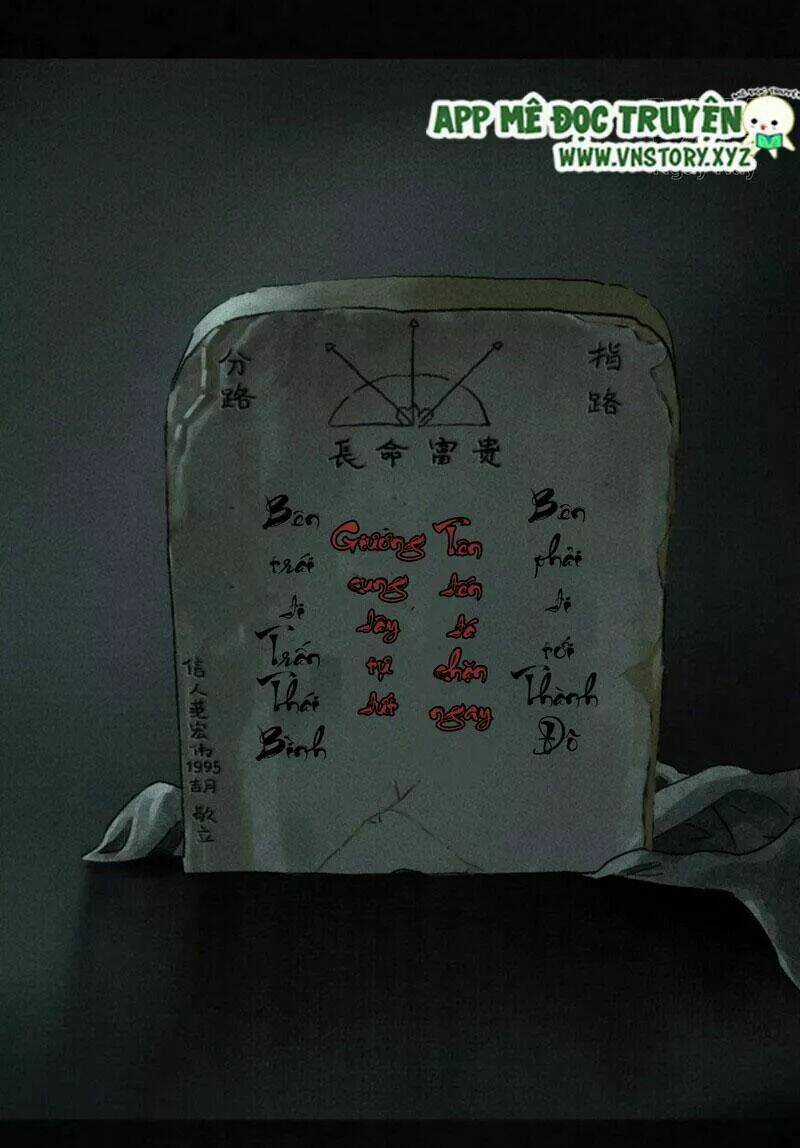 MÊ ĐỌC TRUYỆN
APP MÊ ĐỌC TRUYỆN
WWW.VNSTORY.XYZ
分路
指路
長命富貴
Bên
trái
đi
Trấn
Thái
Bình
Gương
cung
dây
tự
đứt
Tên
đến
đá
chặn
ngay
Bên
phải
đi
tới
Thành
Đô
信人
宏伟
1995
敬立